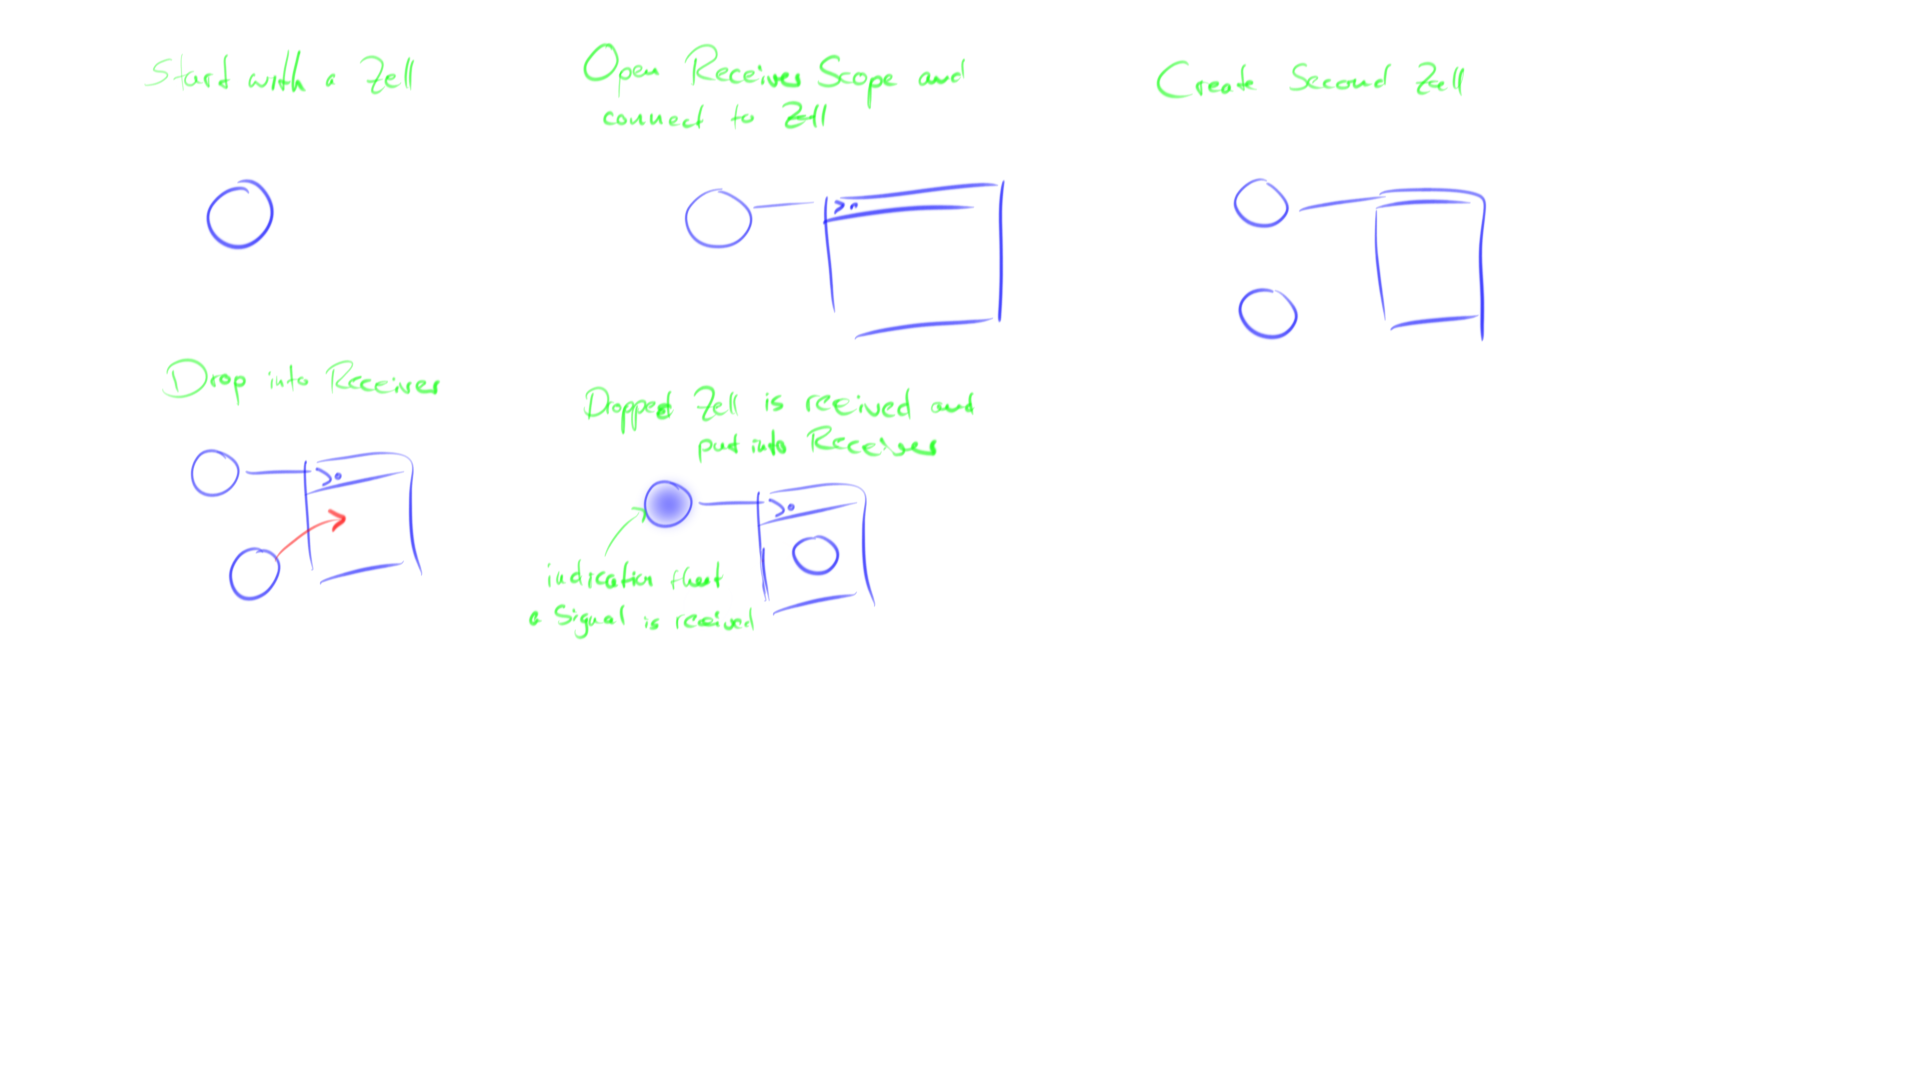 Start with a Zell
Open Receiver Scope and
connect to Zell
Create Second Zell
Drop into Receiver
Dropped Zell is received and
put into Receiver
indication that
a Signal is received